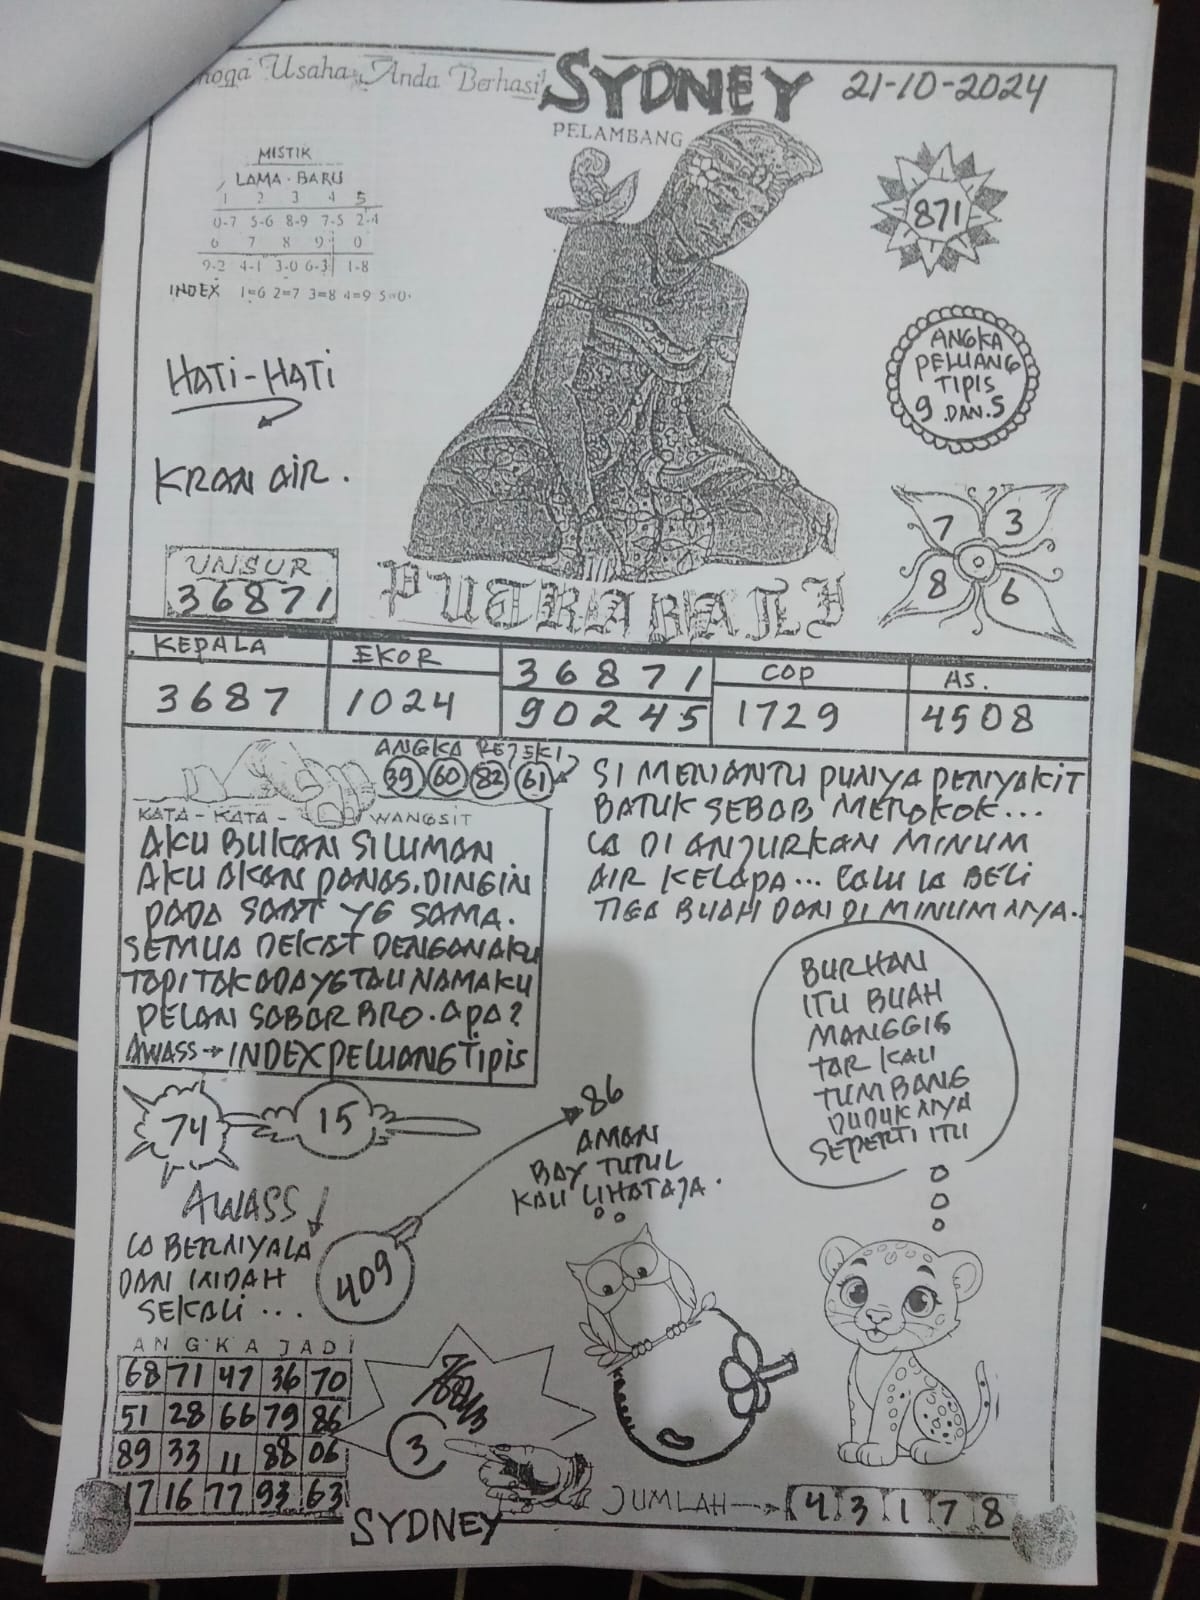 Usaha Anda Berhasil
SYDNEY
21-10-2024
PELAMBANG
MISTIK
LAMA - BARU
1 2 3 4 5
0-7 5-6 8-9 7-5 2-4
6 7 8 9 0
9-2 4-1 3-0 6-3 1-8
INDEX 1=6 2=7 3=8 4=9 5=0
871
ANGKA
PELUANG
TIPIS
9 DAN 5
HATI-HATI
KRAN AIR.
7 3
8 6
UNSUR
36871
PUTRA BALI
KEPALA
3687
EKOR
1024
36871
90245
COP
1729
AS.
4508
ANGKA REJEKI
39 60 82 61
KATA-KATA- WANGSIT
AKU BUKAN SILUMAN
AKU AKAN PANAS.DINGIN
PADA SAAT YG SAMA.
SEMUA DEKAT DENGAN AKU
TAPI TAK ADA YG TAU NAMAKU
PELAN SABAR BRO. APA?
AWASS → INDEX PELUANG TIPIS
SI MENANTU PUNYA PENYAKIT
BATUK SEBAB MEROKOK...
IA DI ANJURKAN MINUM
AIR KELAPA... LALU IA BELI
TIGA BUAH DAN DI MINUM NYA..
BURHAN
ITU BUAH
MANGGIS
TAR KALI
TUMBANG
DUDUK NYA
SEPERTI ITU
74 15
86
AMAN
BAY TUTUL
KALI LIHAT AJA.
AWASS
IA BERNYALA
DAN INDAH
SEKALI ...
409
ANGKA JADI
68 71 47 36 70
51 28 66 79 86
89 33 11 88 06
17 16 77 93 63
3
SYDNEY
JUMLAH → 4 3 1 7 8